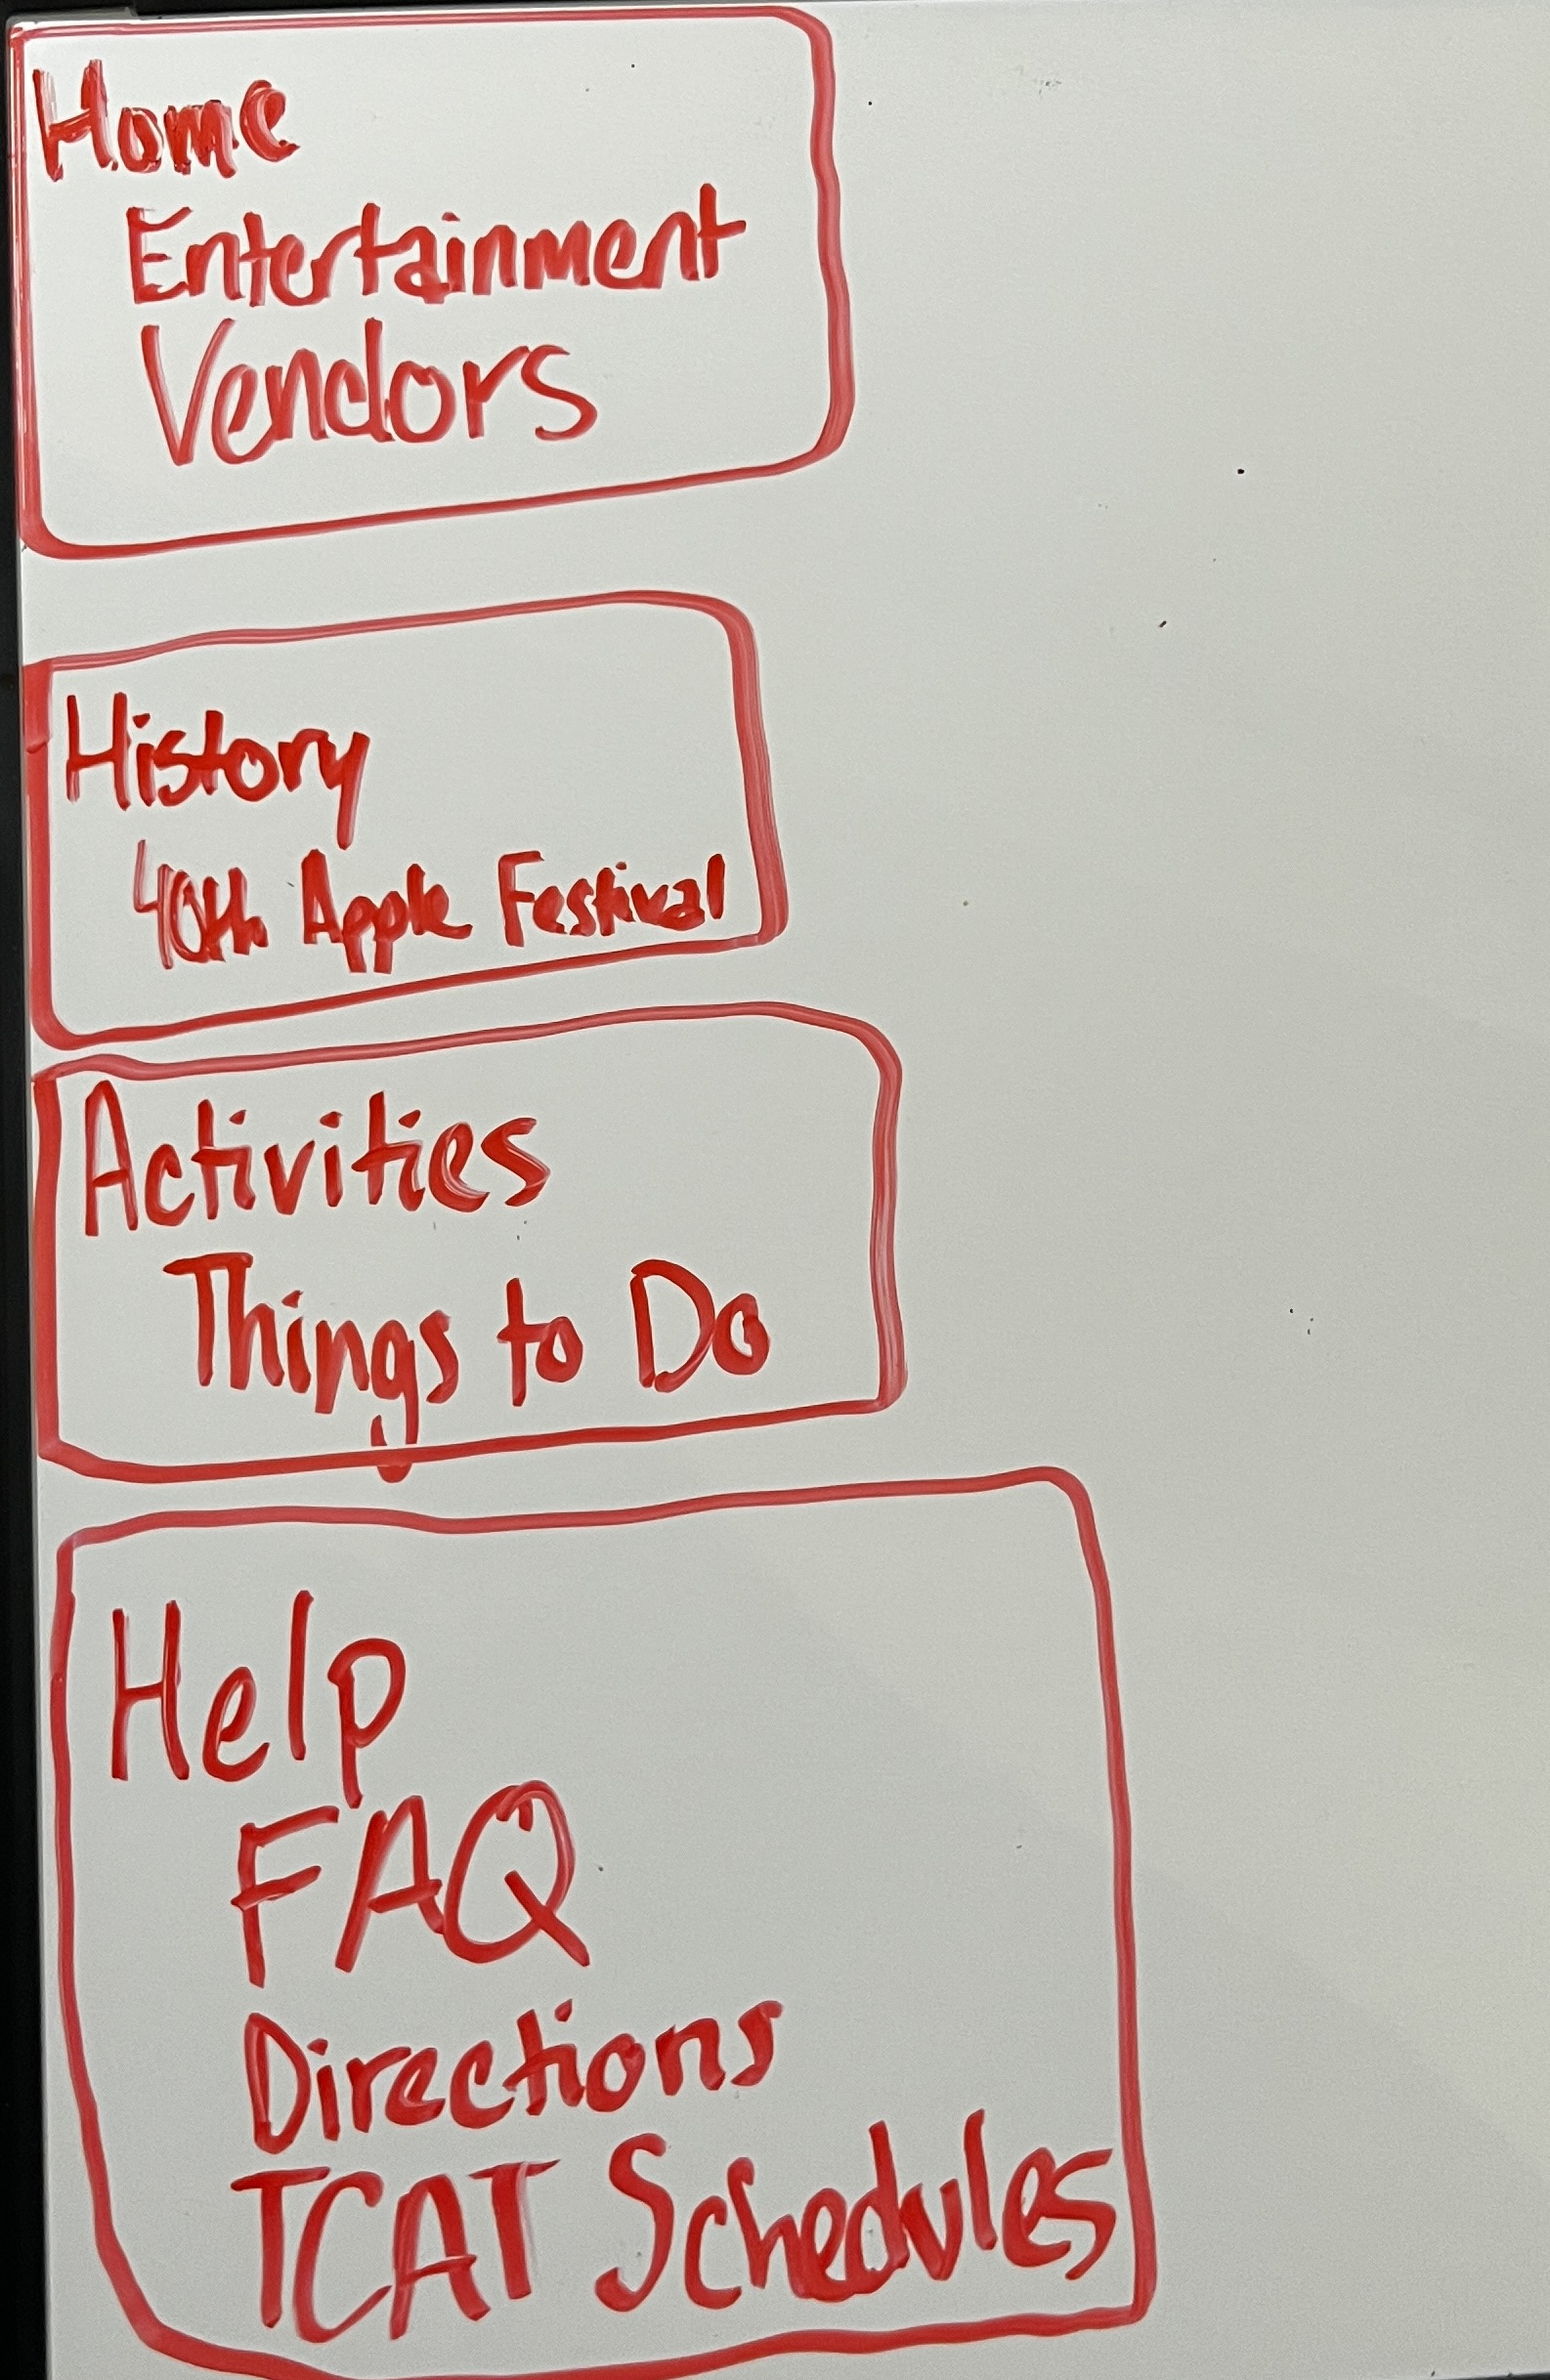 Home
Entertainment
Vendors
History
40th Apple Festival
Activities
Things to Do
Help
FAQ
Directions
TCAT Schedules